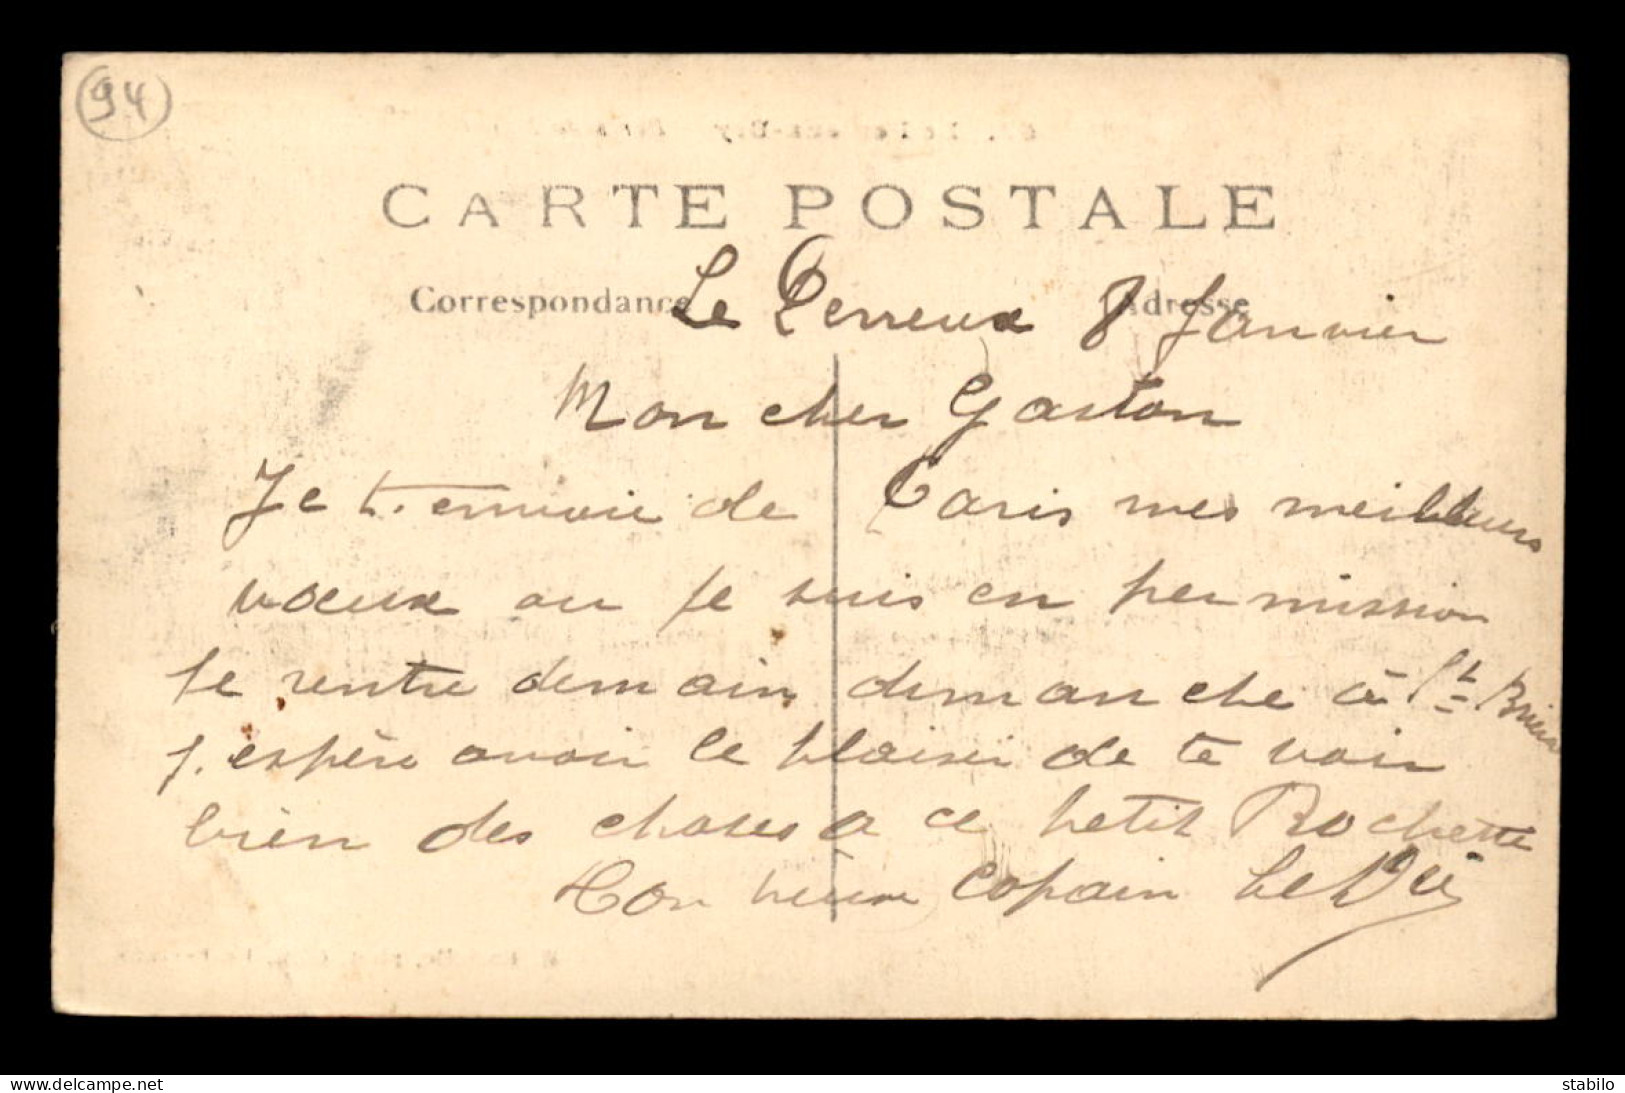 94
CARTE POSTALE
Correspondance Adresse
Le Perreux 8 Janvier
Mon cher Gaston
Je t. envoie de Paris mes meilleurs
vœux ou je suis en permission
je rentre demain dimanche à St Brieuc
j. espère avoir le plaisir de te voir
bien des choses a ce petit Rochette
Ton vieux Copain
www.delcampe.net
stabilo